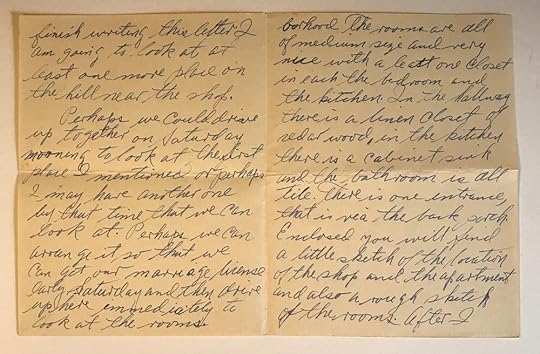 borhood. The rooms are all
of medium size and very
nice with a least one closet
in each the bedroom and
the kitchen. In the hallway
there is a linen closet of
cedar wood, in the kitchen
there is a cabinet sink
and the bathroom is all
tile. There is one entrance,
that is via the back porch.
Enclosed you will find
a little sketch of the location
of the shop and the apartment
and also a rough sketch
of the rooms. After I
finish writing this letter I
am going to look at at
least one more place on
the hill near the shop.
Perhaps we could drive
up together on Saturday
morning to look at the first
place I mentioned, or perhaps
I may have another one
by that time that we can
look at. Perhaps we can
arrange it so that we
can get our marriage license
early Saturday and then drive
up here immediately to
look at the rooms.